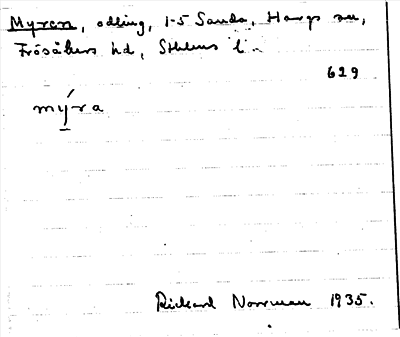 Myran, odling, 1-5 Sanda, Hargs sn,
Frösåkers hd, Sthlms l.
629
mýra
Rickard Norrman 1935.